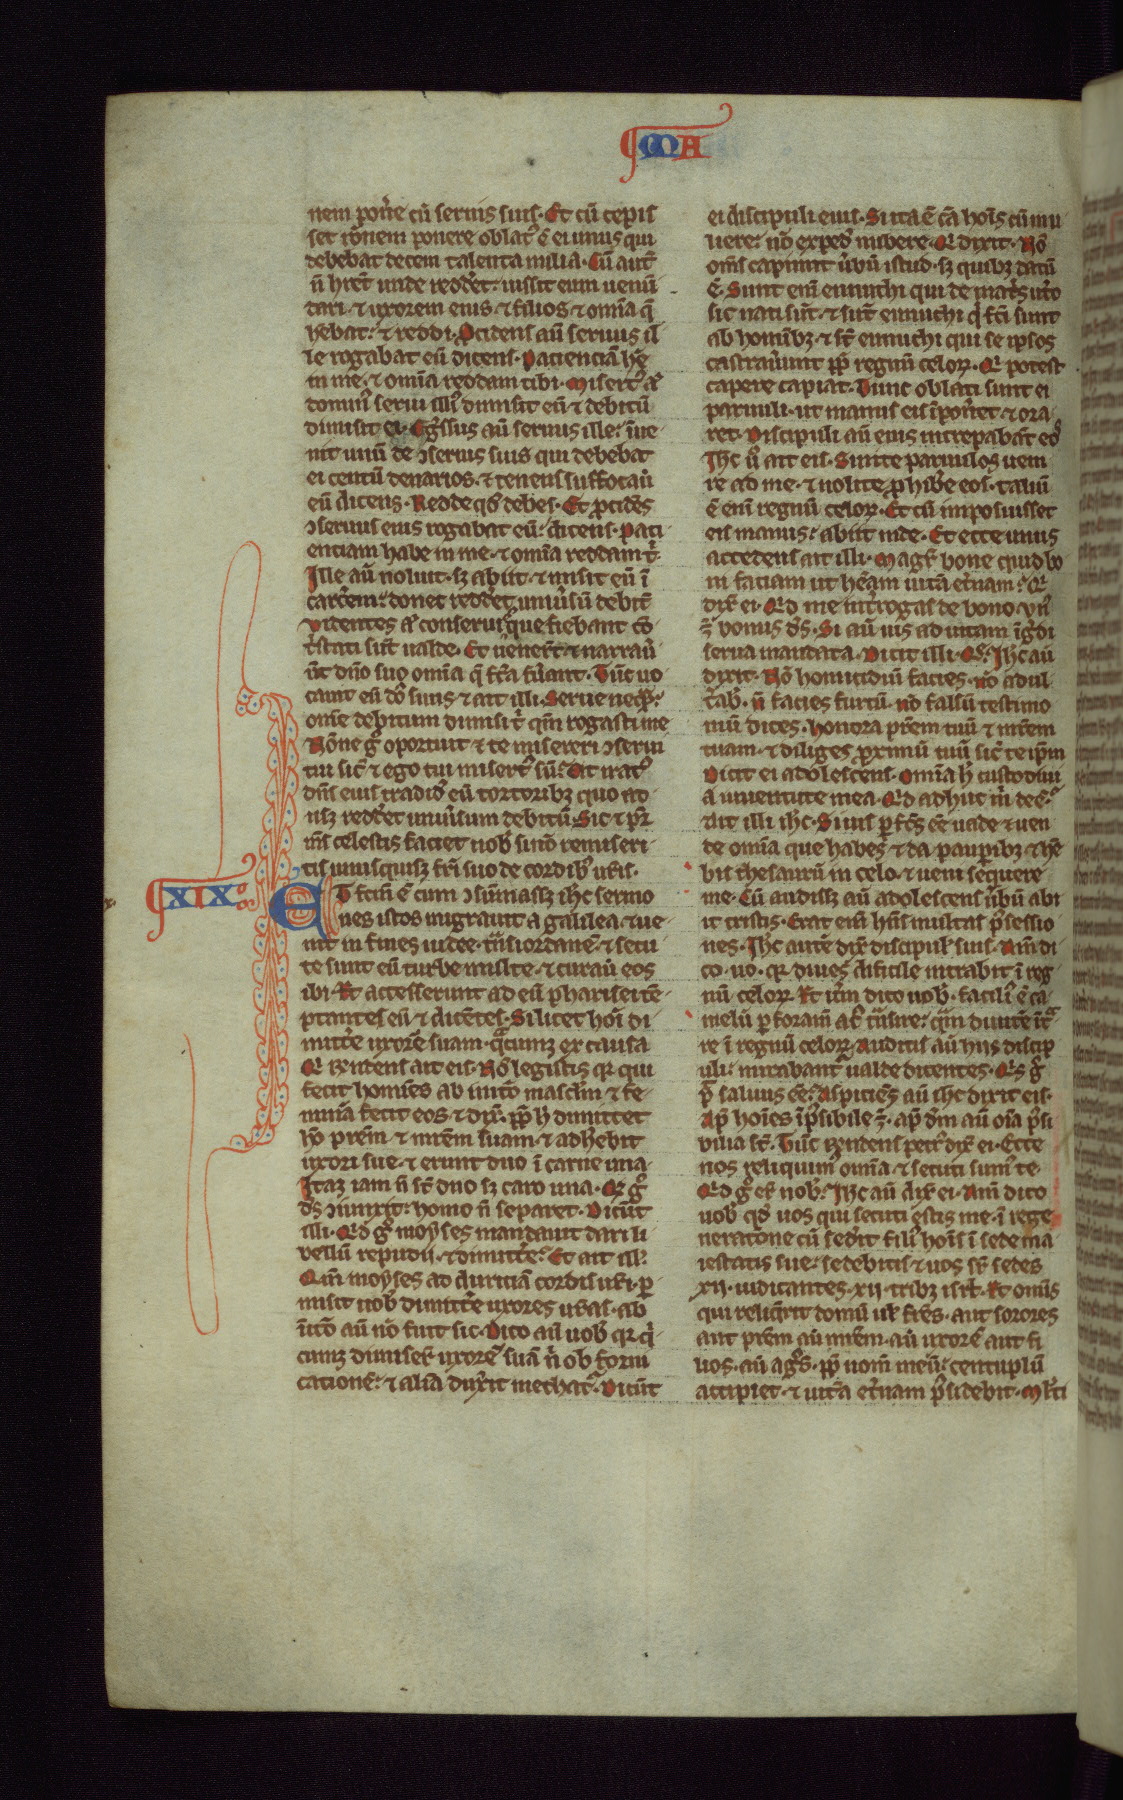 MA
nem pon̄e cū seruis suis. Et cū cepis
set rōnem ponere oblatꝰ ē ei unus qui
debebat decem talenta milia. Cū aut̄
n̄ hr̄et unde redd̄et: iussit eum uenū
dari. ⁊ uxorem eius. ⁊ filios. ⁊ om̄ia q̄
hēbat: ⁊ reddi. Ꝓcidens aū seruus il
le rogabat eū dicens. Pacienciā hē
in me. ⁊ om̄ia reddam tibi. Misertꝰ aꝰ
domin̄ serui illiꝰ dimisit eū ⁊ debitū
dimisit ei. Egr̄ssus aū seruus ille: īue
nit unū de ꝯseruis suis qui debebat
ei centū denarios. ⁊ tenens suffocāu
eū dicens. Redde qd̄ debes. Et ꝓcidēs
ꝯseruus eius rogabat eū: dicens. Paci
entiam habe in me. ⁊ om̄ia reddam t̄.
Ille aū noluit. sꝫ abiit. ⁊ misit eū ī
carc̄em: donec redd̄et uniūsū debit̄
Videntes aꝰ conserui que fiebant cō
tͥstati sūt ualde. Et uenert̄ ⁊ narraū
ūt dn̄o suo om̄ia q̄ fc̄a fūant. Tūc uo
cauit eū dō suus ⁊ ait illi. Serue neqͣ:
om̄e debitum dimisi t̄ qm̄ rogasti me
Nōne gͦ oportuit ⁊ te misereri ꝯserui
tui sic̄ ⁊ ego tui misertꝰ sū: Et iratꝰ
dn̄s eius tradid̄ eū tortoribꝫ quo ad
usꝫ redd̄et uniūsum debitū. Sic ⁊ pr̄
m̄s celestis faciet nob̄ si nō remiseri
tis unusquisꝫ fr̄i suo de cordibꝰ ur̄is.
XIX. ET fc̄m ē cum ꝯsūmassꝫ ihc̄ sermo
nes istos migrauit a galilea. ⁊ ue
nit in fines iudee. tͣns iordanē. ⁊ secu
te sunt eū turbe multe. ⁊ curaū eos
ibi. Et accesserunt ad eū pharisei tē
ptantes eū ⁊ dicētes. Si licet hōi di
mitt̄e uxorē suam. qͣcumꝫ ex causa
Qͥ r̄ndens ait eis. Nō legistis qꝛ qui
fecit homīes ab initō mascl̄m ⁊ fe
minā fecit eos. ⁊ dix̄. ꝓp̄ h̄ dimittet
hō prēm. ⁊ mrēm suam. ⁊ adhebit
uxori sue. ⁊ erunt duo ī carne una.
Itaꝫ iam n̄ st̄ duo sꝫ caro una. Qꝛ gͦ
ds̄ ꝯiunxit: homo n̄ separet. Dicūt
illi. Qͥd gͦ moyses mandauit dari li
bellū repudii. ⁊ dimitt̄e: Et ait ill̄.
Qm̄ moyses ad duritiā cordis ur̄i. ꝑ
misit nob̄ dimitt̄e uxores ur̄as. ab
īitō aū nō fuit sic. Dico aū uob̄ qꝛ qͥ
cumꝫ dimiser̄ uxorē suā n̄ ob forni
cationē. ⁊ aliā dux̄it mechatͬ. Dicūt
ei discipuli eius. Si ita ē cā hoīs cū mu
liere: nō exped̄ nubere. Qͥ dixit. Nō
om̄s capiunt ūbū istud. sꝫ quibꝫ datū
ē. Sunt em̄ eunuchi qui de mat̄s ut̄o
sic nati sūt. ⁊ sūt eunuchi qͥ fc̄i sunt
ab homībꝫ. ⁊ st̄ eunuchi qui se ipsos
castraūunt ꝓp̄ regnū celoꝝ. Qͥ potest
capere capiat. Tunc oblati sunt ei
paruuli. ut manus eis īpon̄et ⁊ ora
ret. Discipuli aū eius increpabāt eoꝰ
Ihc̄ ū ait eis. Sinite paruulos ueni
re ad me. ⁊ nolite ꝓhib̄e eos. taliū
ē em̄ regnū celoꝝ. Et cū imposuisset
eis manus: abiit inde. Et ecce unus
accedens ait illi. Magr̄ bone quid bo
ni faciam ut hēam uitā et̄nam: Qͥ
dix̄ ei. Qͥd me int̄rogas de bono. Vnꝰ
ē bonus ds̄. Si aū uis ad uitam īgͣdi
serua mandata. Dicit illi. Qͤ: Ihc̄ aū
dixit. Nō homicidiū facies. nō adul
t̄ab̄. n̄ facies furtū. nō falsū testimo
niū dices. Honora prēm tuū ⁊ mrēm
tuam. ⁊ diliges ꝓximū tuū sic̄ te ip̄m
Dicit ei adolescens. Om̄ia h̄ custodiui
a iuuentute mea. Qͥd adhuc m̄ deē:
Ait illi ihc̄. Si uis ꝑfc̄s eē uade ⁊ uen
de om̄ia que habes ⁊ da pauꝑibꝫ ⁊ hē
bis thesaurū in celo. ⁊ ueni sequere
me. Cū audissꝫ aū adolescens ūbū abi
it tristis. Erat em̄ hn̄s multas pͦsessio
nes. Ihc̄ autē dix̄ discipul̄ suis. Am̄ di
co uo. qꝛ diues difficile intrabit ī reg
nū celoꝝ. Et it̄m dico uob̄. faciliꝰ ē ca
melū ꝑ foramē acꝰ tͣnsire: qͣm diuitē īt̄
re ī regnū celoꝝ. Auditis aū hiis discip
uli: mirabant̄ ualde dicentes. Qͥs gͦ
pͦ saluus eē: Aspiciēs aū ihc̄ dixit eis.
Ap̄ hoīes īpͦsibile ē. ap̄ dm̄ aū oīa pͦsi
bilia st̄. Tūc r̄ndens petrꝰ dix̄ ei. Ecce
nos reliquimꝰ om̄ia. ⁊ secuti sumꝰ te.
Qͥd gͦ er̄ nob̄: Ihc̄ aū dix̄ ei. Am̄ dico
uob̄ qd̄ uos qui secuti estis me. ī rege
neratōne cū sed̄it filiꝰ hoīs ī sede ma
iestatis sue: sedebitis ⁊ uos sr̄ sedes
xii. iudicantes. xii. tribꝫ isrl̄. Et omīs
qui reliq̄rit domū ul̄ fr̄es. aut sorores
aut prēm aū mrēm. aū uxorē aut fi
lios. aū agͦs. ꝓp̄ nom̄ meū: centuplū
accipiet. ⁊ uitā et̄nam pͦsidebit. Ml̄ti